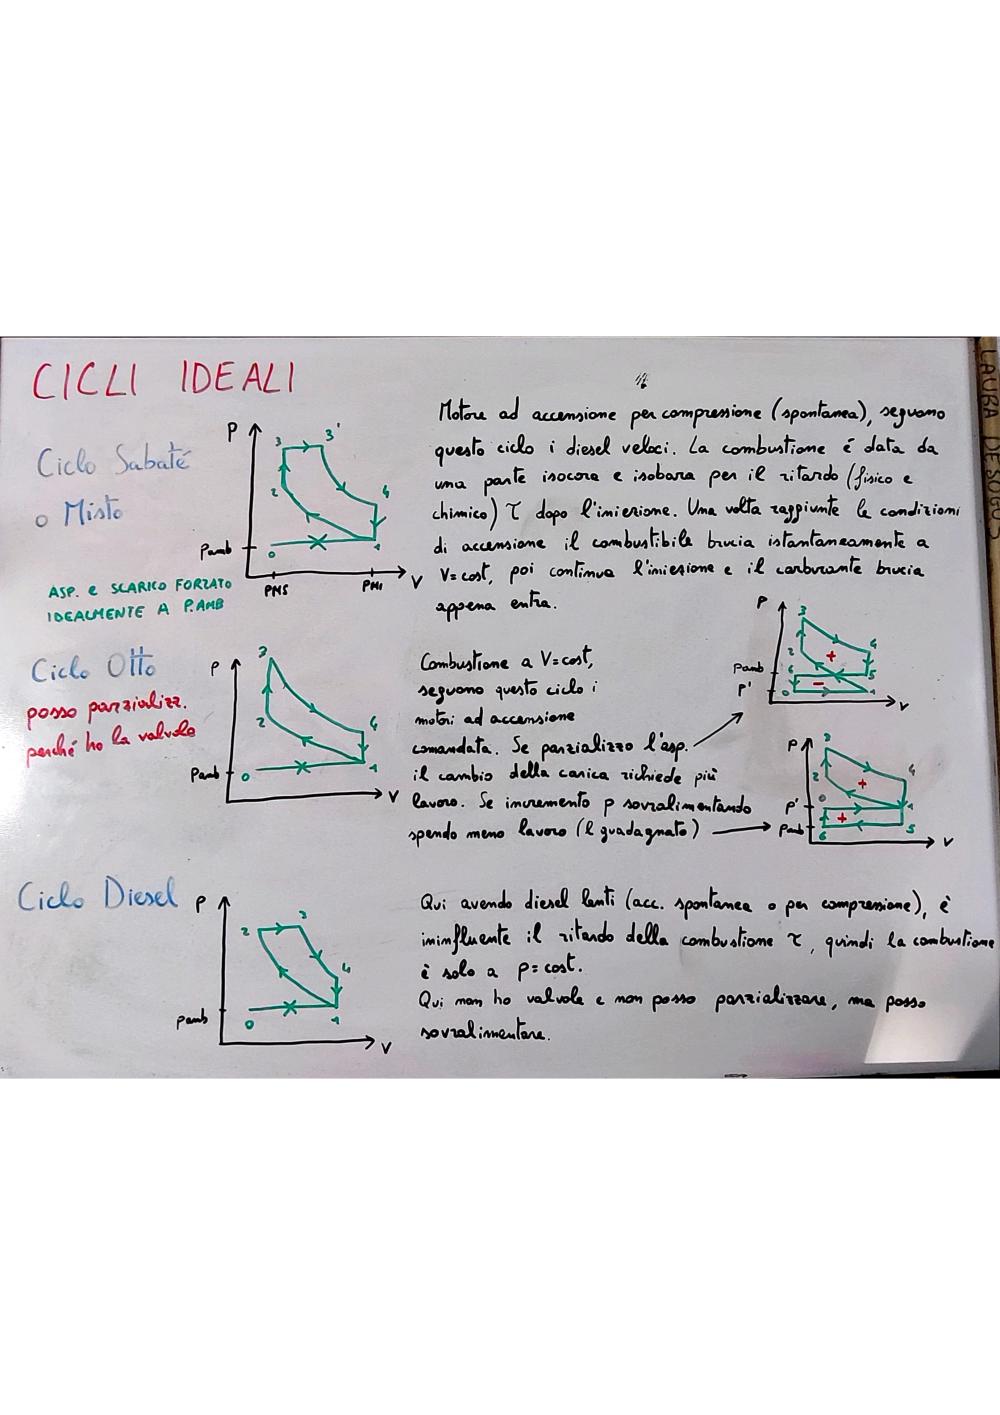 CICLI IDEALI
Ciclo Sabaté
o Misto
P
3
3'
2
4
Pamb
0
1
PMS
PMI
V
ASP. e SCARICO FORZATO
IDEALMENTE A P.AMB
Motore ad accensione per compressione (spontanea), seguono
questo ciclo i diesel veloci. La combustione é data da
una parte isocora e isobara per il ritardo (fisico e
chimico) τ dopo l'iniezione. Una volta raggiunte le condizioni
di accensione il combustibile brucia istantaneamente a
V=cost, poi continua l'iniezione e il carburante brucia
appena entra.
Ciclo Otto
posso parzializz.
perché ho la valvola
P
3
2
4
Pamb
0
1
V
Combustione a V=cost,
seguono questo ciclo i
motori ad accensione
comandata. Se parzializzo l'asp.
il cambio della carica richiede più
lavoro. Se incremento p sovralimentando
spendo meno lavoro (l guadagnato)
P
3
4
2
+
Pamb
6
5
P'
0
-
1
V
P
3
4
2
+
0
P'
1
+
Pamb
6
5
V
Ciclo Diesel
P
2
3
4
Pamb
0
1
V
Qui avendo diesel lenti (acc. spontanea o per compressione), è
ininfluente il ritardo della combustione τ, quindi la combustione
è solo a p=cost.
Qui non ho valvola e non posso parzializzare, ma posso
sovralimentare.
LAURA DESOGUS